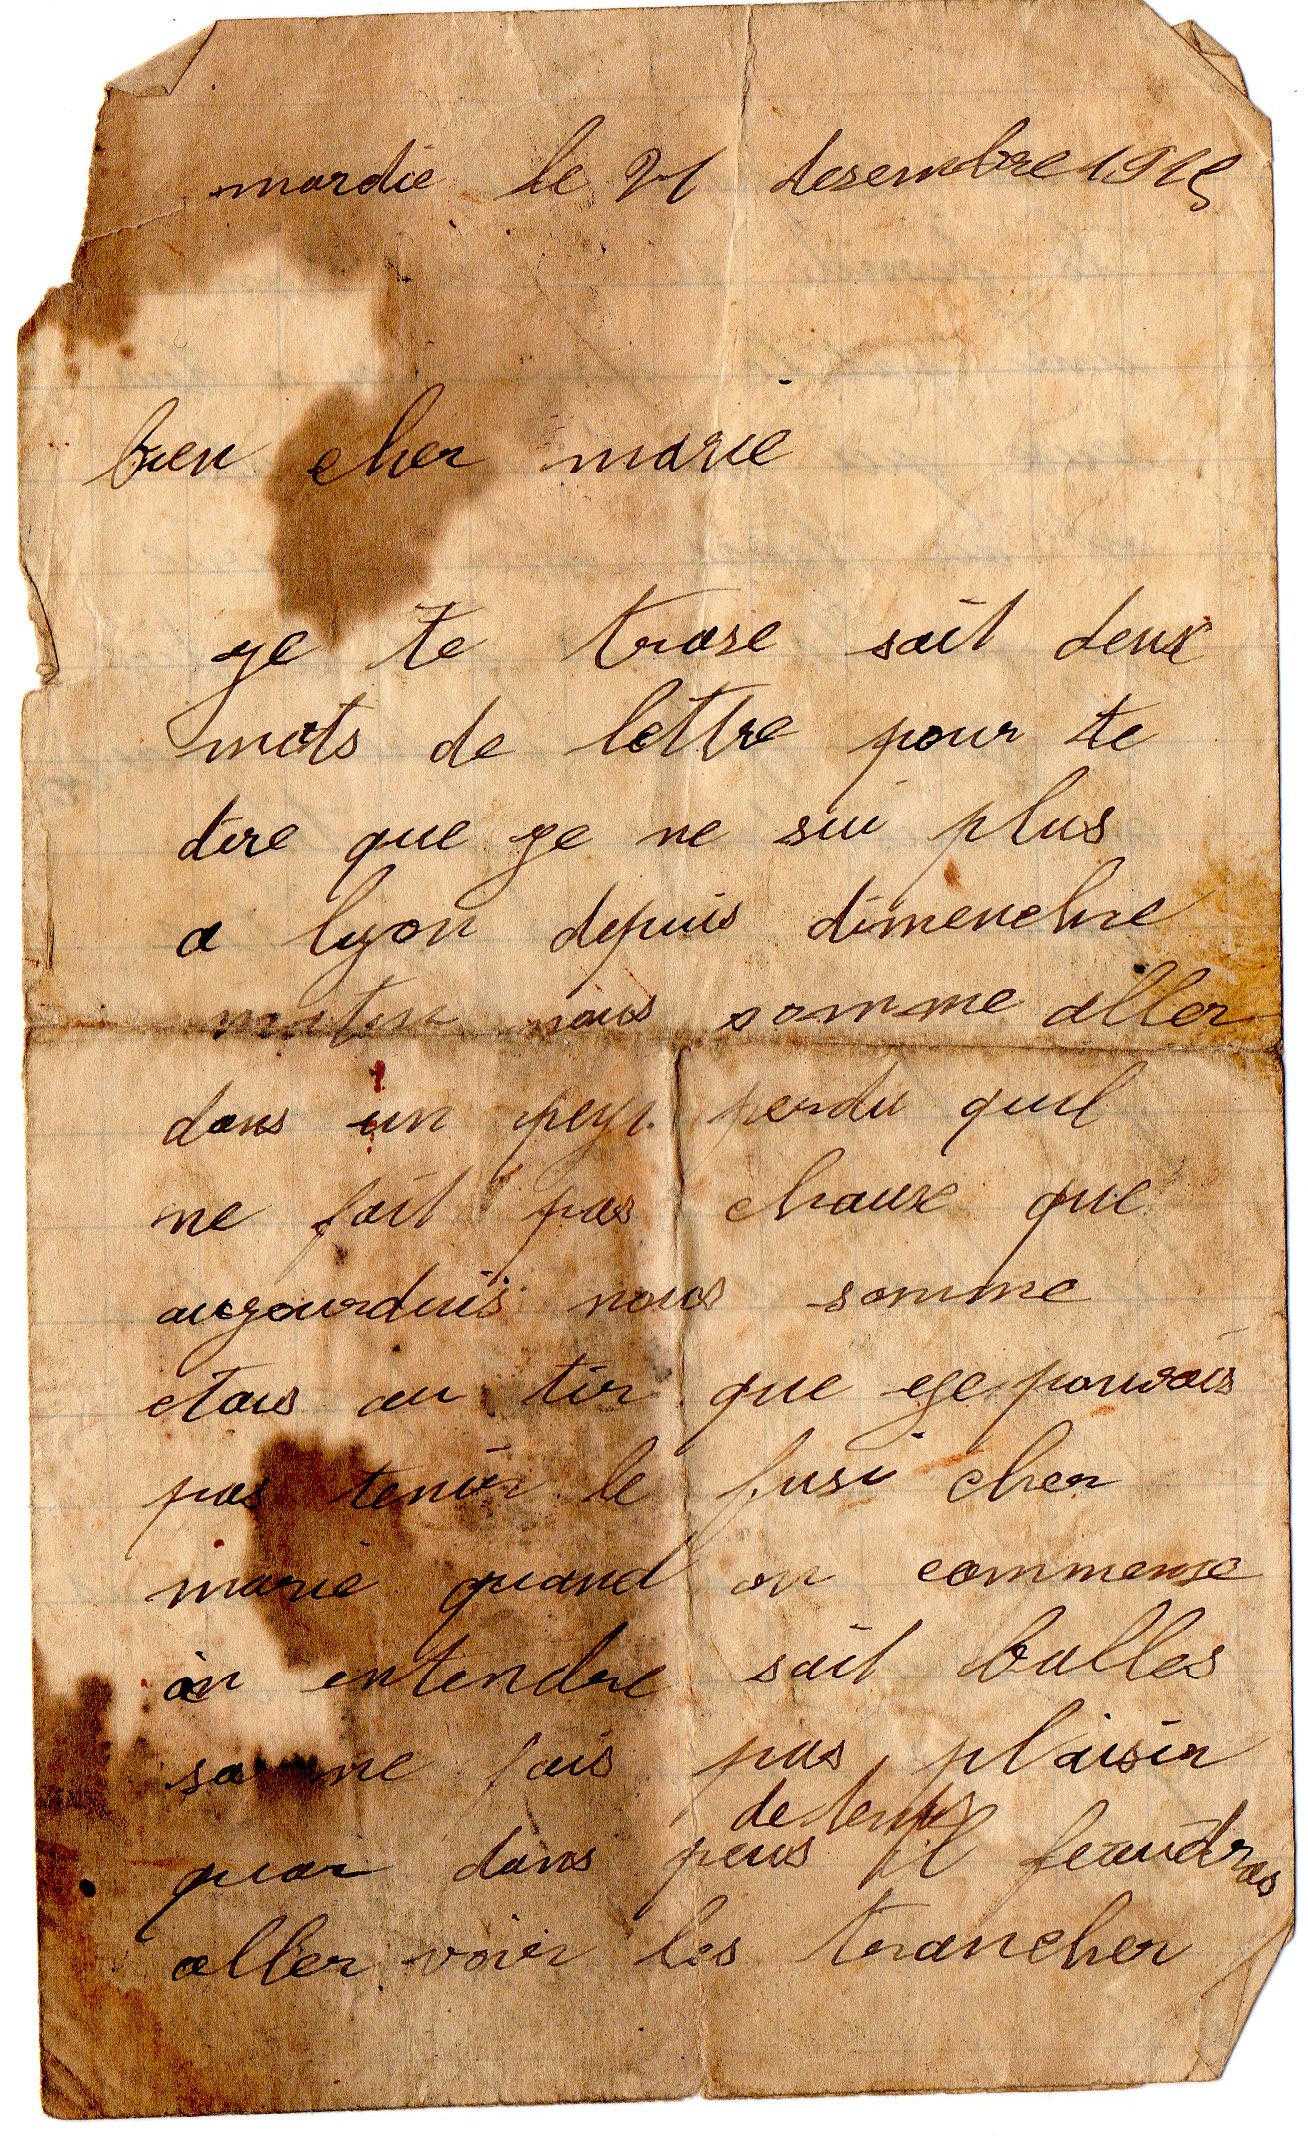 mardie le 21 desembre 1915
bien cher marie
ge te trase sait deux
mots de lettre pour te
dire que ge ne sui plus
a lyon depuis dimenche
matin nous somme aller
dans un peyi perdu quil
ne fait pas chause que
augourduis nous somme
etais au tir que ge pouvais
pas tenir le fusi cher
marie quand on commense
an entendre sait balles
sa me fais pas plaisir
de temps
quar dans peus il feaudras
aller voir les trancher